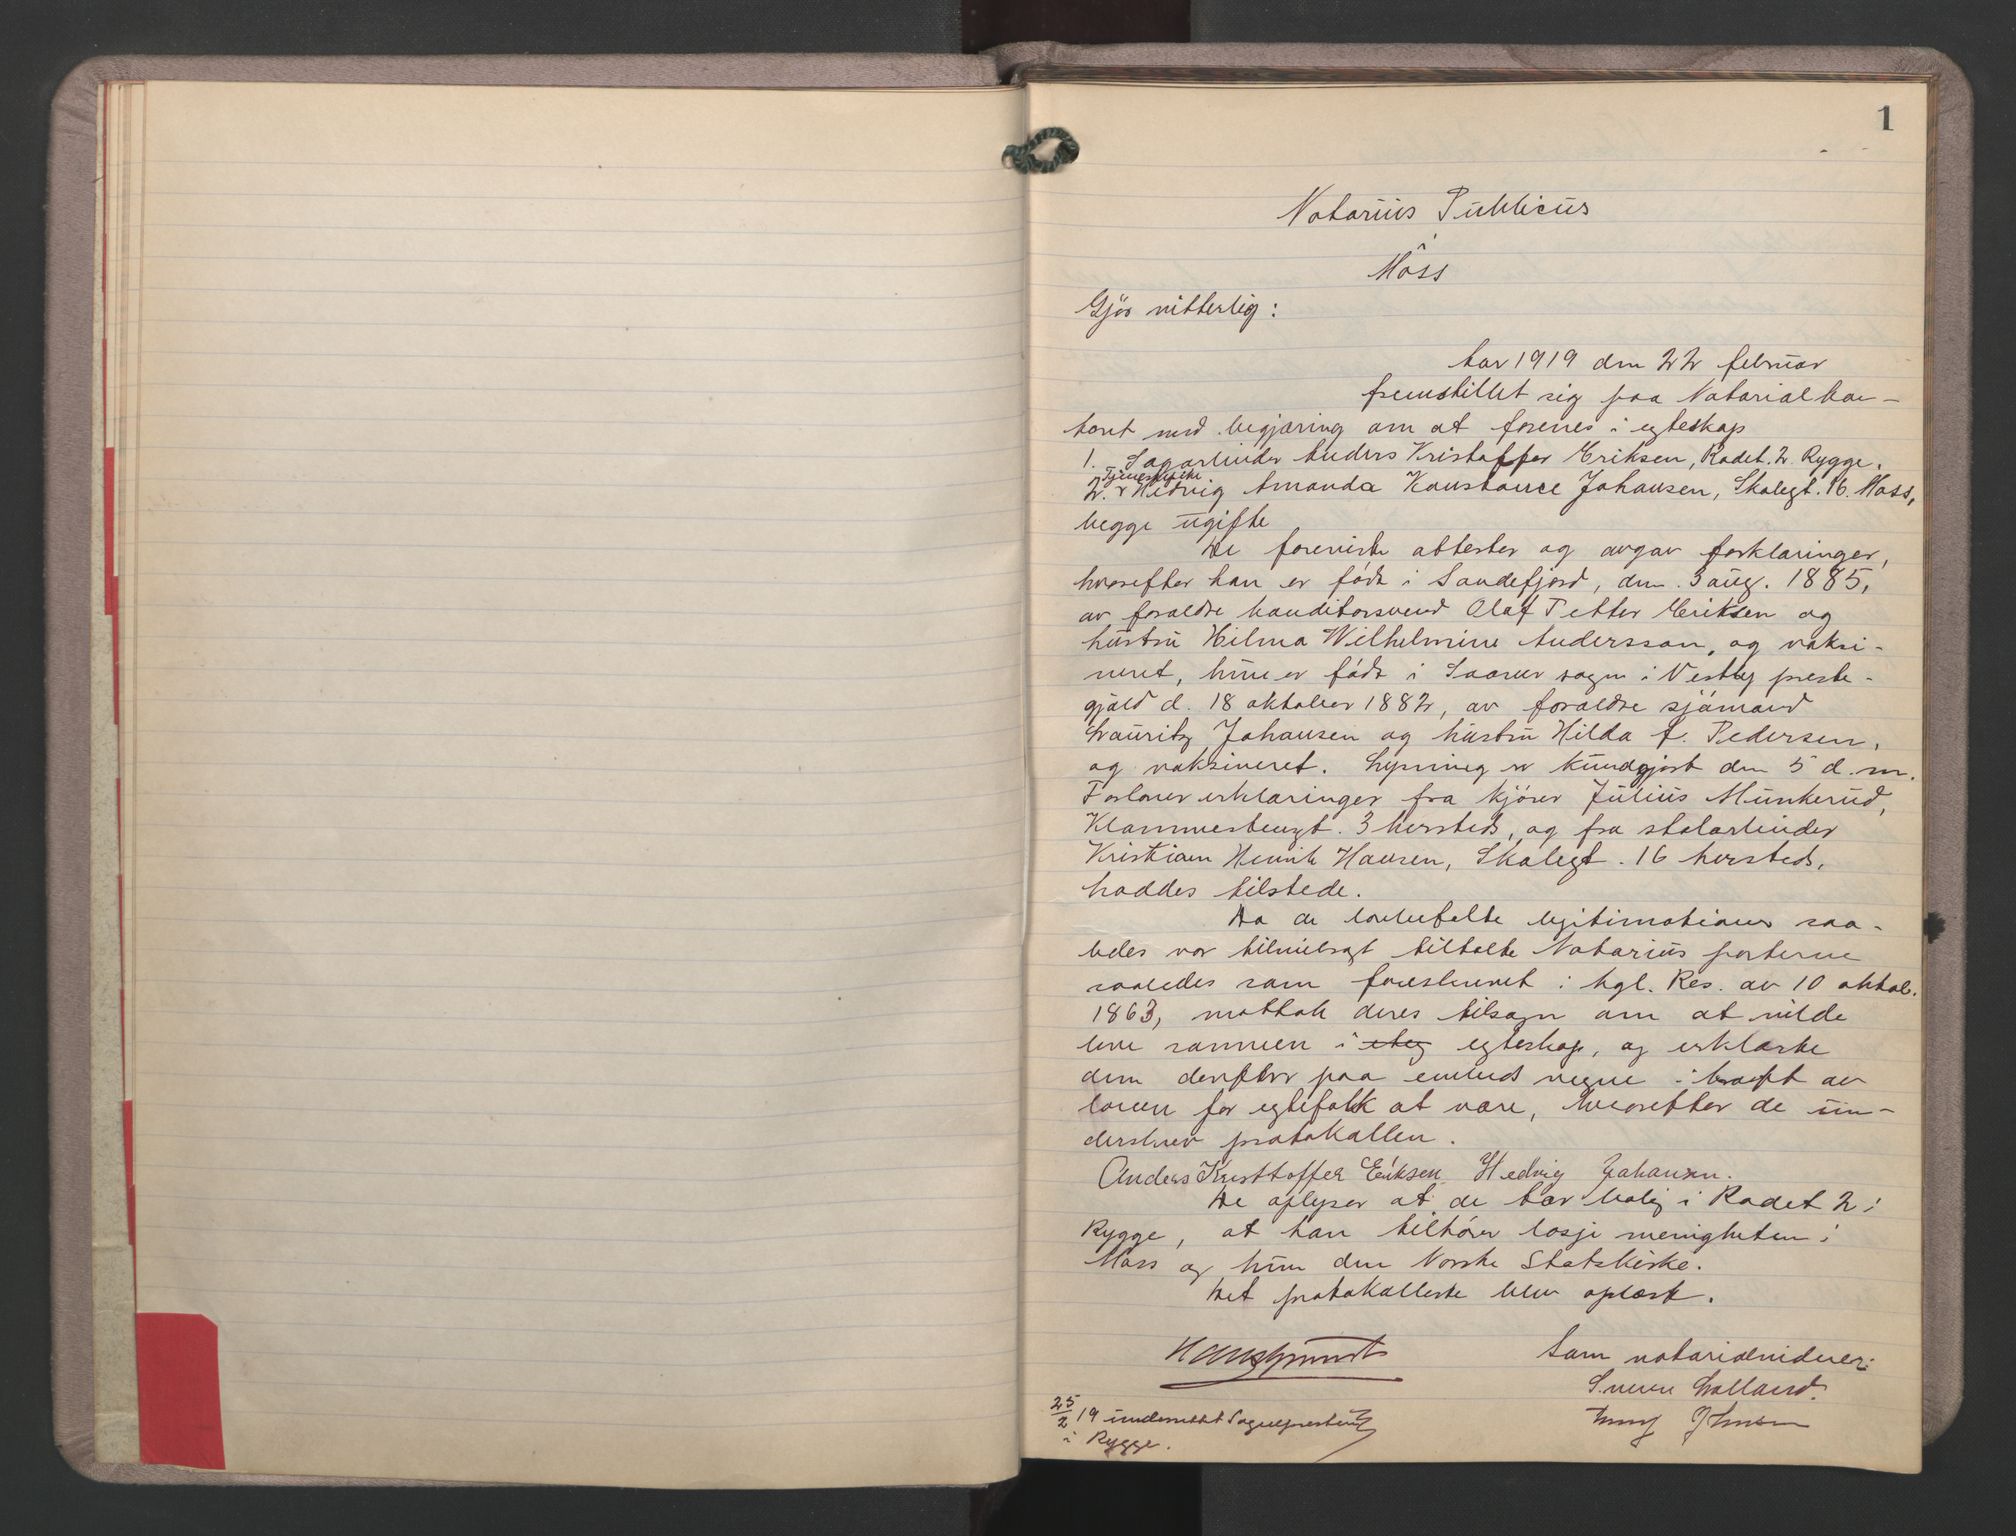 1
Notarius Publicus
i
Moss
Gjör vitterlig:
Aar 1919 den 22 februar
fremstillet sig paa Notarialkon-
toret med begjæring om at forenes i egteskap
1. Sagarbeider Anders Kristoffer Eriksen, Rødet. 2. Rygge.
Tjenestepike
2. Hedvig Amanda Konstance Johansen, Skolegt. 16. Moss,
begge ugifte
De foreviste attester og avgav forklaringer,
hvorefter han er född i Sandefjord, den 3 aug. 1885,
av forældre konditorsvend Olaf Petter Eriksen og
hustru Hilma Wilhelmine Andersson, og vaksi-
neret, hun er född i Saaner sogn i Vestby preste-
gjæld d. 18 oktober 1882, av forældre sjömand
Lauritz Johansen og hustru Hilda A. Pedersen,
og vaksineret. Lysning er kundgjort den 5 d.m.
Forlovererklæringer fra kjörer Julius Munkerud,
Klommestengt. 3 hersteds, og fra stolarbeider
Kristian Henrik Hansen, Skolegt. 16 hersteds,
haddes tilstede.
Da de lovbefalte legitimationer saa-
ledes var tilveiebragt tiltalte Notarius parterne
saaledes som foreskrevet i kgl. Res. av 10 oktob.
1863, mottok deres tilsagn om at vilde
leve sammen i eteg egteskap, og erklærte
dem derefter paa embeds vegne i kraft av
loven for egtefolk at være, hvorefter de un-
derskrev protokollen.
Anders Kristtoffer Eriksen Hedvig Johansen.
De oplyser at de tar bolig i Rødet 2 i
Rygge, at han tilhörer losje menigheten i
Moss og hun den Norske Statskirke.
Det protokollerte blev oplæst.
Som notarialvidner:
25/2 19 underrettet Sognepresten
i Rygge.